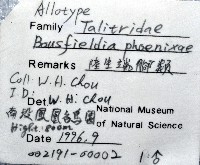 Allotype
Family Talitridae
Bousfieldia phoenixae
Remarks 陸生端脚類
Coll: W. H. Chou
I.D:
Det. W. H. Chou
南投鳳凰鳥園 National Museum
Hight: 800m of Natural Science
Date 1996.9
002191-00002 1♀